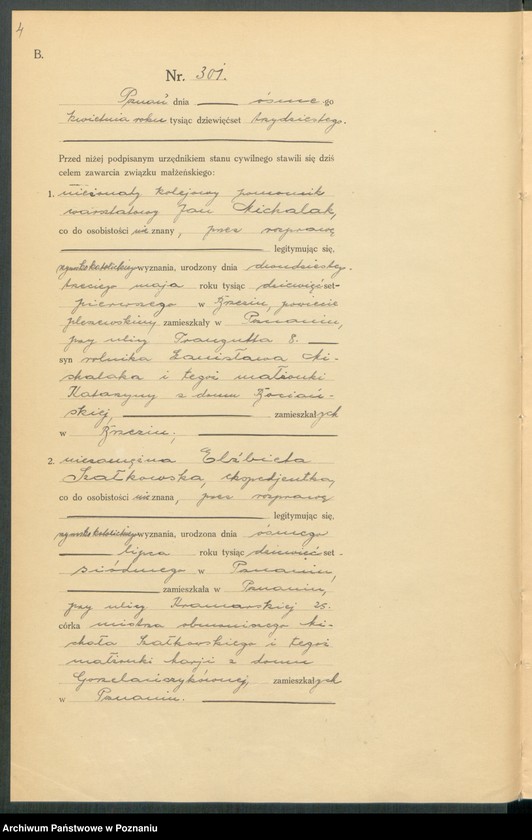 4
B.
Nr. 301.
Poznań dnia ósmego
kwietnia roku tysiąc dziewięćset trzydziestego.
Przed niżej podpisanym urzędnikiem stanu cywilnego stawili się dziś
celem zawarcia związku małżeńskiego:
1. nieżonaty kolejowy pomocnik
warsztatowy Jan Michalak,
co do osobistości nie znany, przez rozprawę
legitymując się,
rzymskokatolickiego wyznania, urodzony dnia dwudziestego
trzeciego maja roku tysiąc dziewięćset
pierwszego w Brzeziu, powiecie
pleszewskim, zamieszkały w Poznaniu,
przy ulicy Traugutta 8.
syn rolnika Stanisława Mi-
chalaka i tegoż małżonki
Katarzyny z domu
skiej, zamieszkałych
w Brzeziu;
2. niezamężna Elżbieta
Szałkowska, ekspedjentka,
co do osobistości nie znana, przez rozprawę
legitymując się,
rzymskokatolickiego wyznania, urodzona dnia ósmego
lipca roku tysiąc dziewięćset
siódmego w Poznaniu,
zamieszkała w Poznaniu,
przy ulicy Kramarskiej 25.
córka mistrza obuwniczego Mi-
chała Szałkowskiego i tegoż
małżonki Marji z domu
Gorzelańczykównej, zamieszkałych
w Poznaniu.
Archiwum Państwowe w Poznaniu